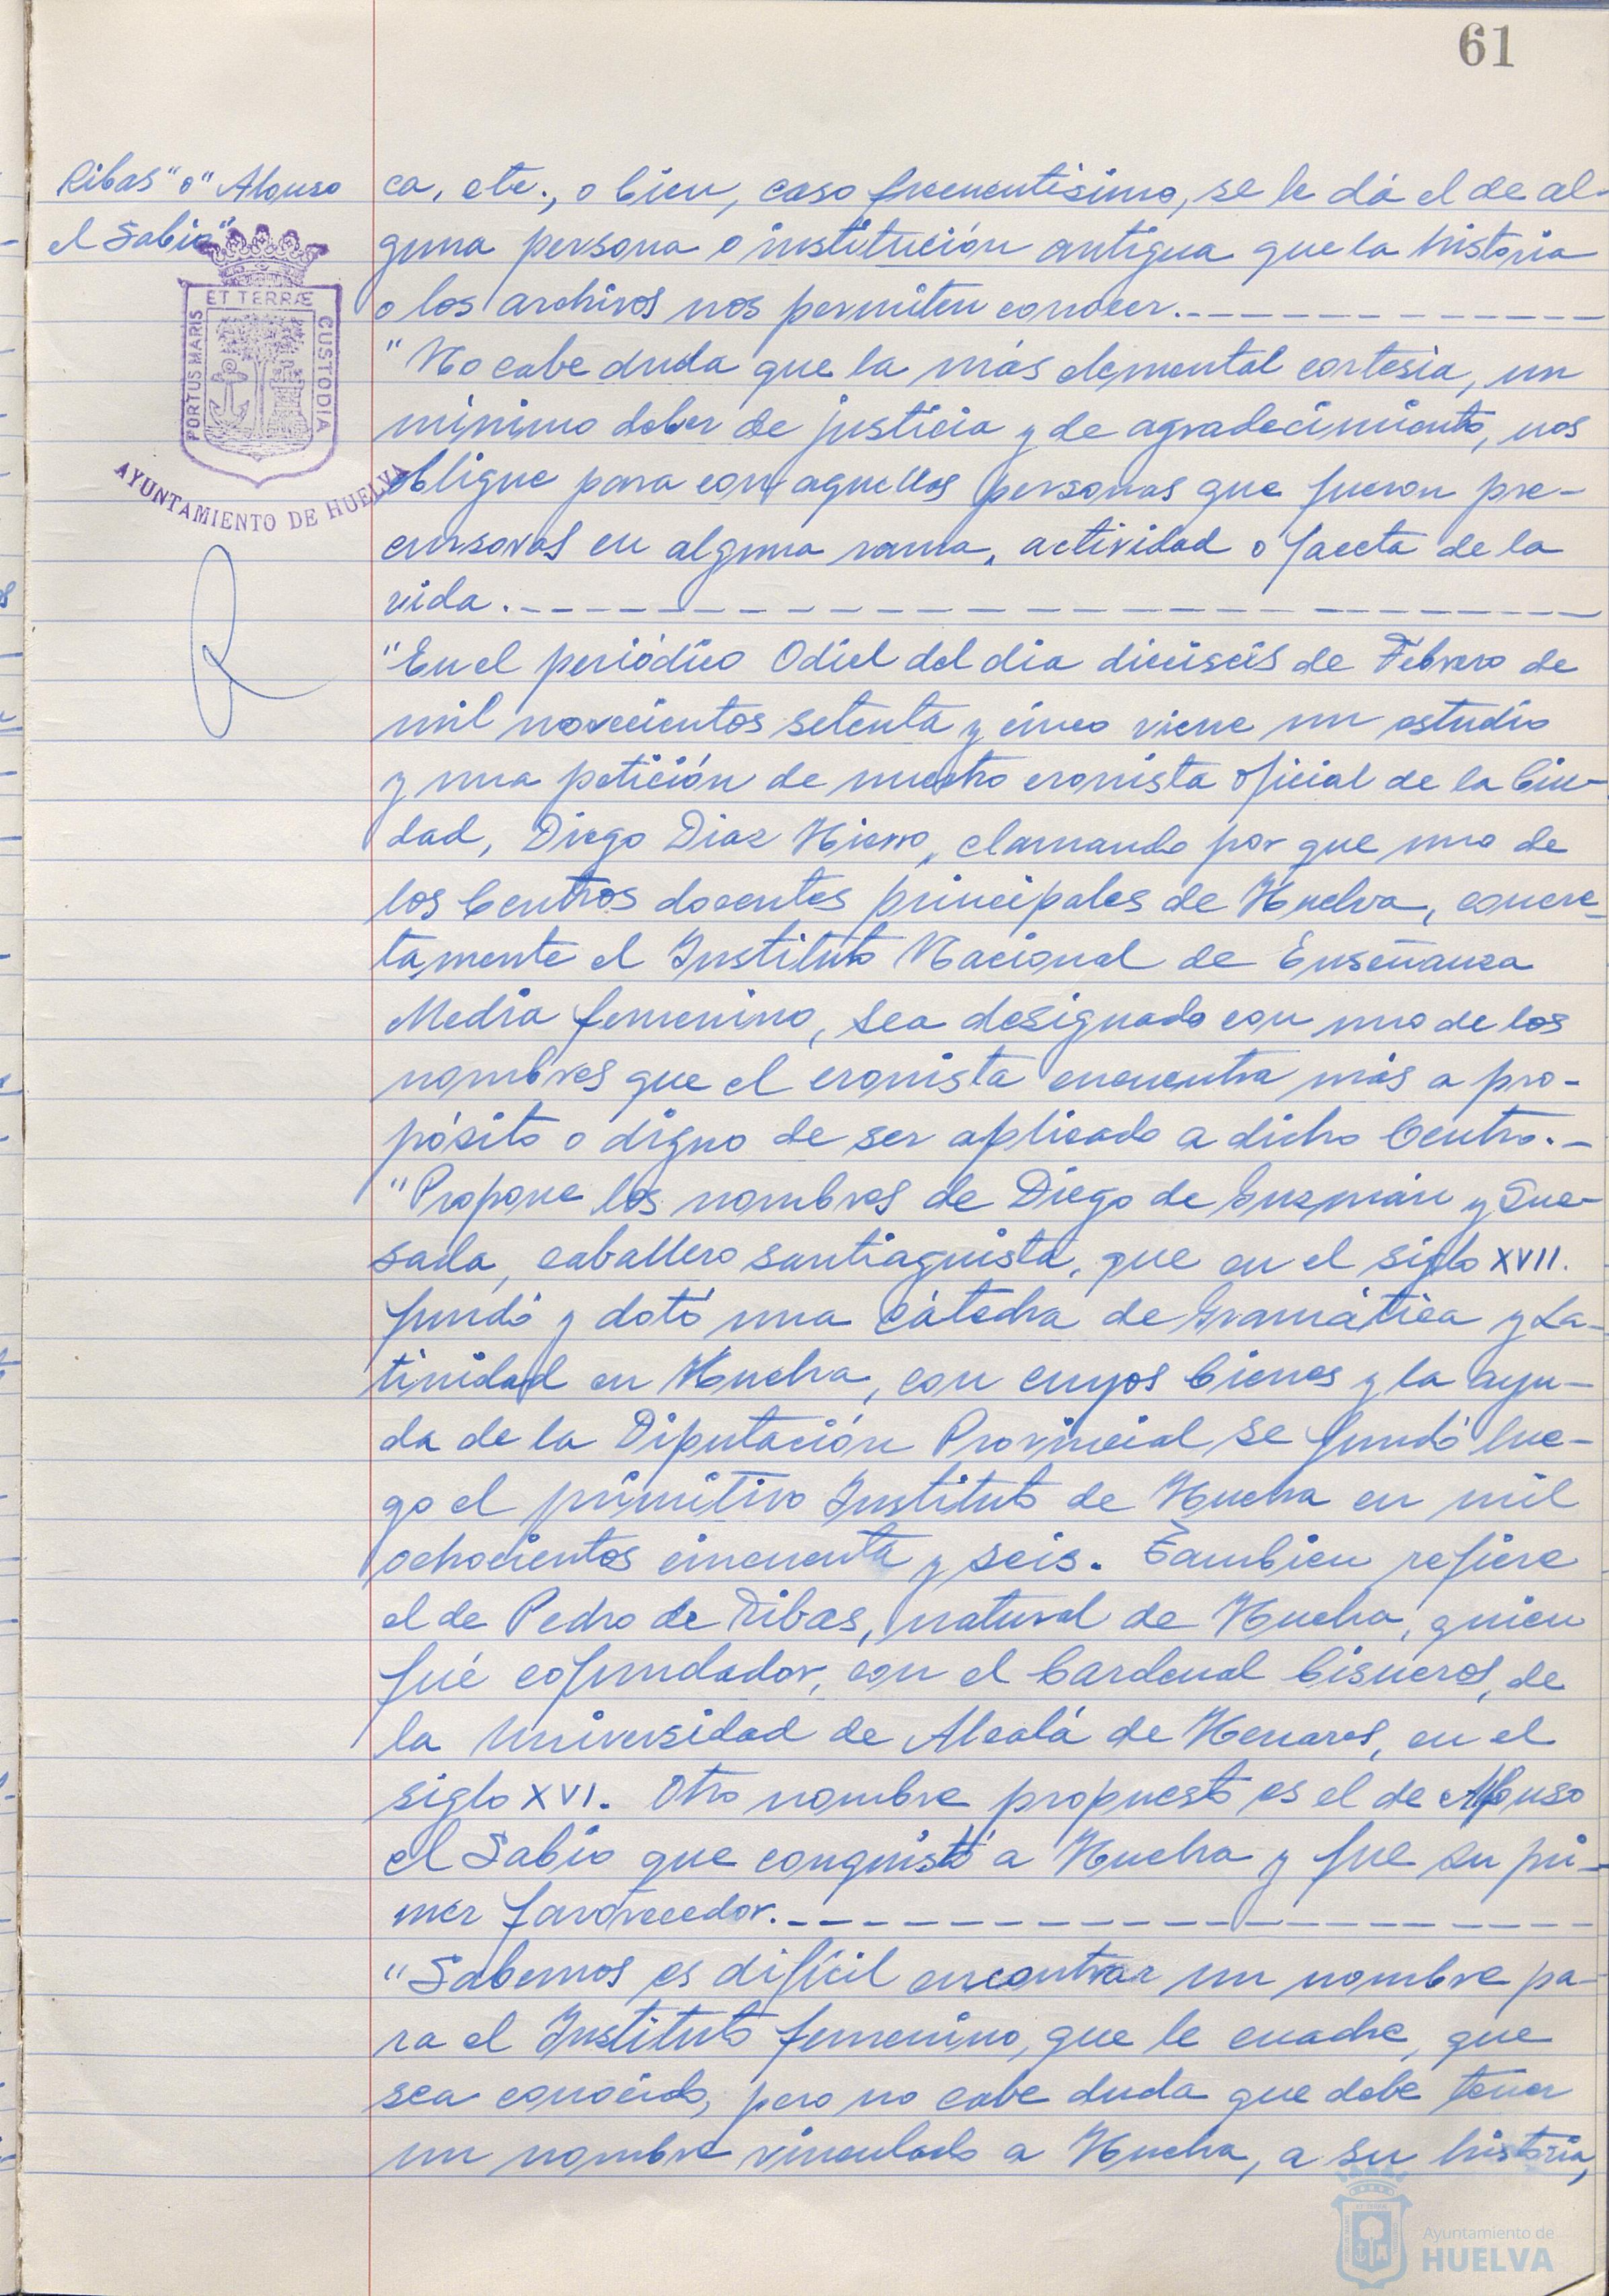 61
Ribas" o "Alonso
el Sabio"
ET TERRÆ
PORTUS MARIS
CUSTODIA
AYUNTAMIENTO DE HUELVA
ca, etc., o bien, caso frecuentisimo, se le dá el de al-
guna persona o institución antigua que la historia
o los archivos nos permiten conocer.
"No cabe duda que la más elemental cortesia, un
minimo deber de justicia y de agradecimiento, nos
obligue para con aquellas personas que fueron pre-
cursoras en alguna rama, actividad o faceta de la
vida.
"En el periódico Odiel del dia dieciseis de Febrero de
mil novecientos setenta y cinco viene un estudio
y una petición de nuestro cronista oficial de la Ciu-
dad, Diego Diaz Hierro, clamando por que uno de
los Centros docentes principales de Huelva, concre-
tamente el Instituto Nacional de Enseñanza
Media femenino, sea designado con uno de los
nombres que el cronista encuentra más a pro-
pósito o digno de ser aplicado a dicho Centro.-
"Propone los nombres de Diego de Guzmán y Que-
sada, caballero santiaguista, que en el siglo XVII.
fundó y dotó una cátedra de Gramática y La-
tinidad en Huelva, con cuyos bienes y la ayu-
da de la Diputación Provincial se fundó lue-
go el primitivo Instituto de Huelva en mil
ochocientos cincuenta y seis. Tambien refiere
el de Pedro de Ribas, natural de Huelva, quien
fué cofundador, con el Cardenal Cisneros, de
la Universidad de Alcalá de Henares, en el
siglo XVI. Otro nombre propuesto es el de Alfonso
el Sabio que conquistó a Huelva y fue su pri-
mer favorecedor.
"Sabemos es dificil encontrar un nombre pa-
ra el Instituto femenino, que le cuadre, que
sea conocido, pero no cabe duda que debe tener
un nombre vinculado a Huelva, a su historia,
Ayuntamiento de
HUELVA